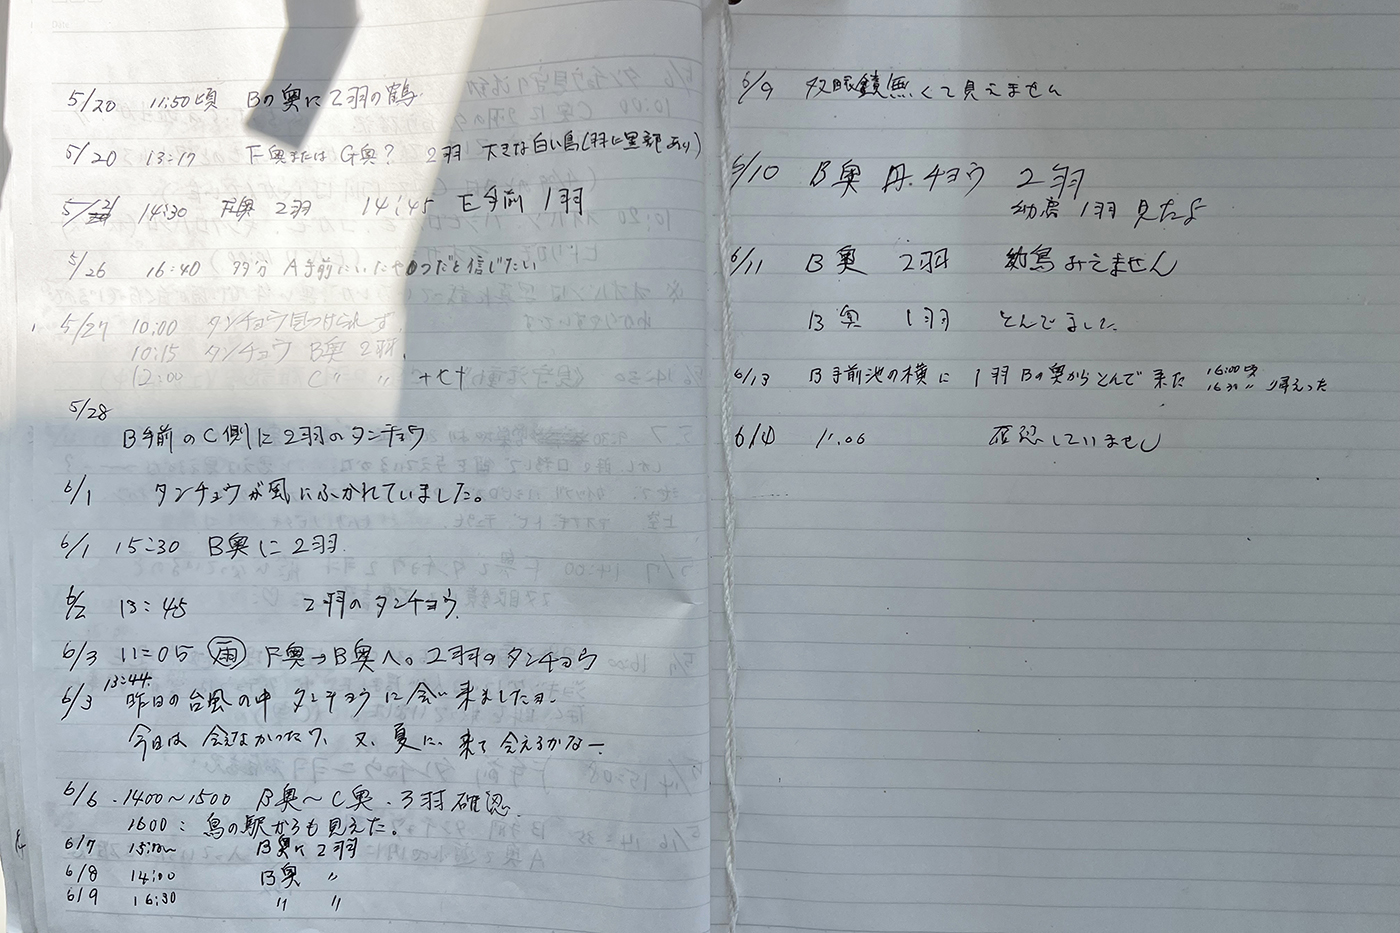 5/20 11:50頃 Bの奥に2羽の鶴.
5/20 13:17 F奥またはG奥? 2羽 大きな白い鳥(羽に黒部あり)
5/21 14:30 F奥 2羽 14:45 E手前 1羽
5/26 16:40 A手前にいたやつだと信じたい
5/27 10:00 タンチョウ見つけられず.
10:15 タンチョウ B奥 2羽.
12:00 C〃 〃
5/28
B手前のC側に2羽のタンチョウ
6/1 タンチョウが風にふかれていました。
6/1 15:30 B奥に2羽.
6/2 13:45 2羽のタンチョウ
6/3 11:05 雨 F奥→B奥へ。2羽のタンチョウ
13:44.
6/3 昨日の台風の中 タンチョウに会い来ましたヨ.
今日は会えなかったり、又、夏に、来て会えるかなー
6/6.1400〜1500 B奥〜C奥.3羽確認.
1600:鳥の駅からも見えた。
6/7 B奥に2羽
6/8 14:00 B奥 〃
6/9 16:30 〃 〃
6/9 双眼鏡無くて見えません
6/10 B奥 丹.チョウ 2羽
幼鳥 1羽 見たよ
6/11 B奥 2羽 幼鳥みえません
B奥 1羽 とんでました.
6/13 B手前池の横に 1羽Bの奥からとんで来た 16:00頃
16:30〃
11.06 確認していません